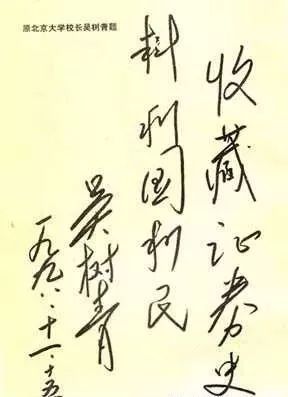 原北京大学校长吴树青题
收藏证券史
料利国利民
吴树青
一九九六.十一.十五